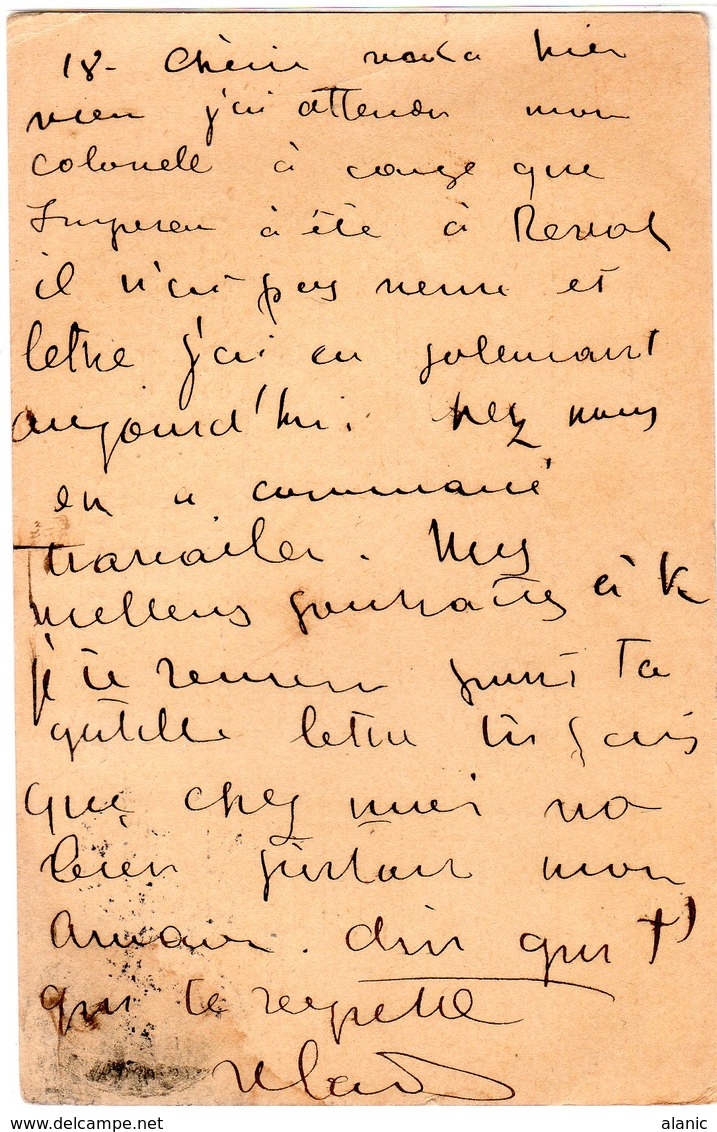 18- Chérie voila hier
j'ai attendu mon
colonele à cauze que
Impereu à été à Reval
il n'est pas venu et
lettre j'ai eu solemant
aujourd'hui. Chez nous
en a commancé
travailer. Mes
melleurs souhaites à K
je te remerci pour ta
gentille lettre
que chez moi va
bien surtout mon
Amour. qui t'
qui te respette
Vlad
alanic